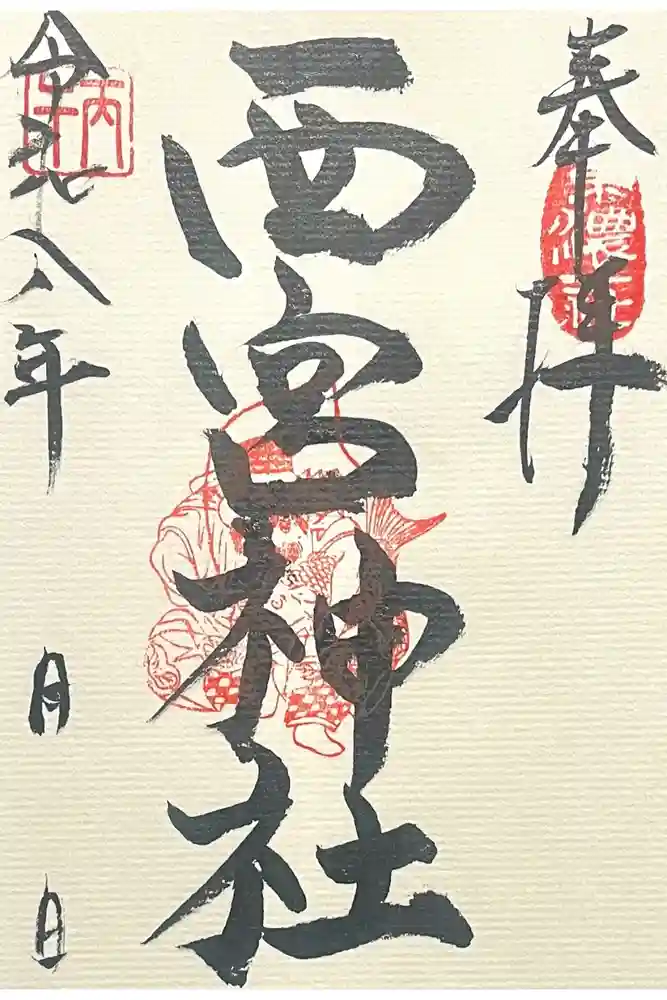 奉拝
西宮神社
令和八年
月
日
丙午